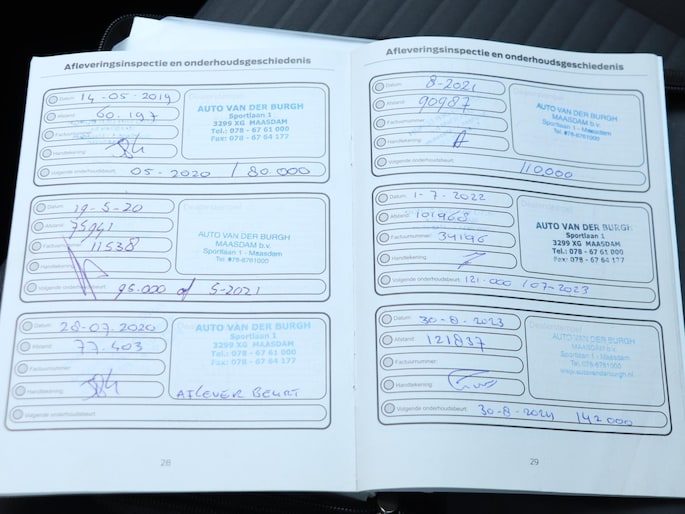 Afleveringsinspectie en onderhoudsgeschiedenis
Datum: 14-05-2019
Afstand: 60.197
Handtekening:
Volgende onderhoudsbeurt: 05-2020 / 80.000
AUTO VAN DER BURGH
Sportlaan 1
3299 XG MAASDAM
Tel.: 078 - 67 61 000
Fax: 078 - 67 64 177
Datum: 19-5-20
Afstand: 75941
Factuurnummer: 11538
Handtekening:
Volgende onderhoudsbeurt: 95.000 of 5-2021
AUTO VAN DER BURGH
MAASDAM b.v.
Sportlaan 1 - Maasdam
Tel. 078-6761000
Datum: 28-07-2020
Afstand: 77.403
Factuurnummer:
Handtekening:
Volgende onderhoudsbeurt:
AUTO VAN DER BURGH
Sportlaan 1
3299 XG MAASDAM
Tel.: 078 - 67 61 000
Fax: 078 - 67 64 177
AFLEVER BEURT
28
Afleveringsinspectie en onderhoudsgeschiedenis
Datum: 8-2021
Afstand: 90987
Factuurnummer:
Handtekening:
Volgende onderhoudsbeurt: 110.000
AUTO VAN DER BURGH
MAASDAM b.v.
Sportlaan 1 - Maasdam
Tel. 078-6761000
Datum: 1-7-2022
Afstand: 101968
Factuurnummer: 34196
Handtekening:
Volgende onderhoudsbeurt: 121-000 / 07-2023
AUTO VAN DER BURGH
Sportlaan 1
3299 XG MAASDAM
Tel.: 078 - 67 61 000
Fax: 078 - 67 64 177
Datum: 30-8-2023
Afstand: 121837
Factuurnummer:
Handtekening:
Volgende onderhoudsbeurt: 30-8-2024 142000
AUTO VAN DER BURGH
MAASDAM b.v.
Sportlaan 1 - Maasdam
Tel. 078-6761000
www.autovanderburgh.nl
29